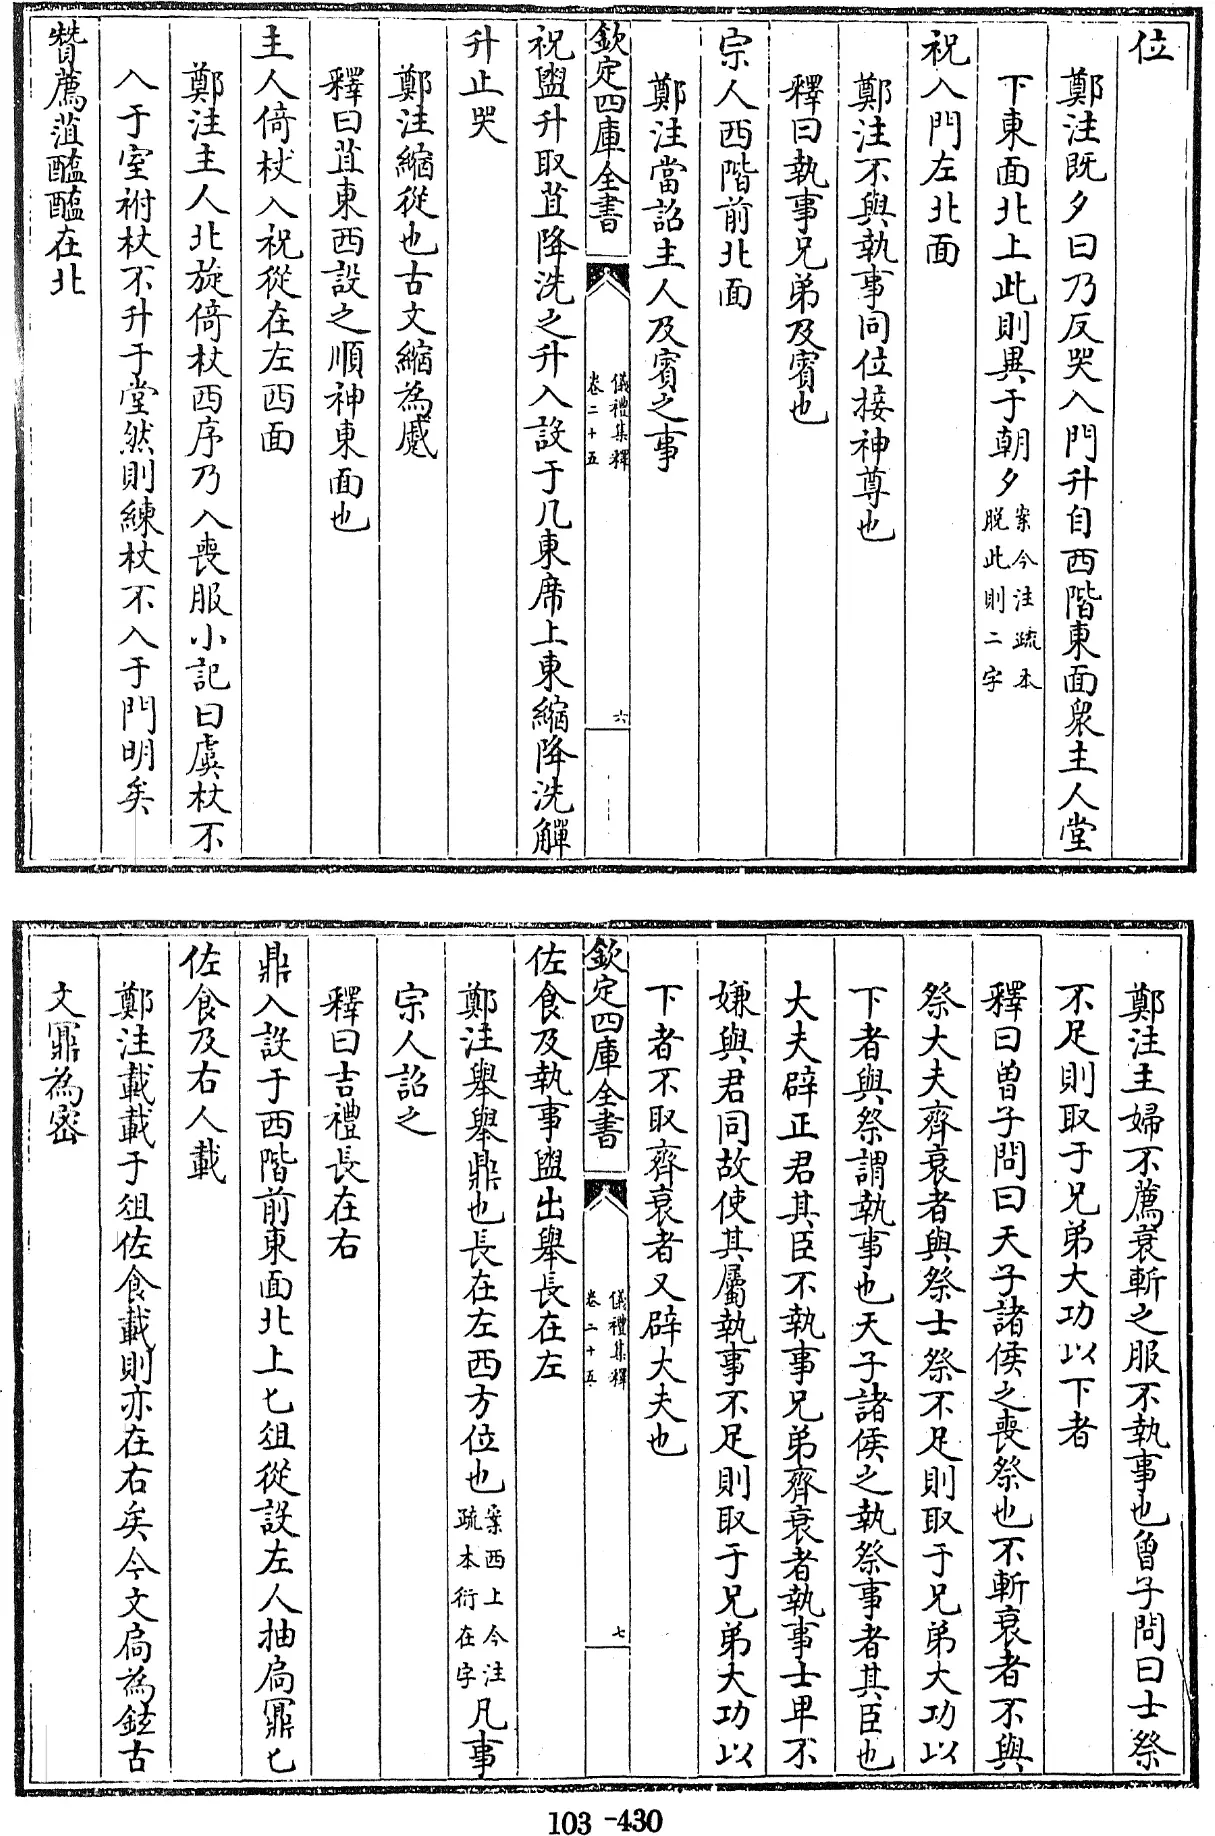 位
鄭注既夕曰乃反哭入門升自西階東面衆主人堂
下東面北上此則異于朝夕案今注疏本脱此則二字
祝入門左北面
鄭注不與執事同位接神尊也
釋曰執事兄弟及賓也
宗人西階前北面
鄭注當詔主人及賓之事
欽定四庫全書 儀禮集釋 卷二十五 六
祝盥升取苴降洗之升入設于几東席上東縮降洗觶
升止哭
鄭注縮從也古文縮為蹙
釋曰苴東西設之順神東面也
主人倚杖入祝從在左西面
鄭注主人北旋倚杖西序乃入喪服小記曰虞杖不
入于室祔杖不升于堂然則練杖不入于門明矣
贊薦菹醢醢在北
鄭注主婦不薦衰斬之服不執事也曾子問曰士祭
不足則取于兄弟大功以下者
釋曰曾子問曰天子諸侯之喪祭也不斬衰者不與
祭大夫齊衰者與祭士祭不足則取于兄弟大功以
下者與祭謂執事也天子諸侯之執祭事者其臣也
大夫辟正君其臣不執事兄弟齊衰者執事士卑不
嫌與君同故使其屬執事不足則取于兄弟大功以
下者不取齊衰者又辟大夫也
欽定四庫全書 儀禮集釋 卷二十五 七
佐食及執事盥出舉長在左
鄭注舉舉鼎也長在左西方位也案西上今注疏本衍在字凡事
宗人詔之
釋曰吉禮長在右
鼎入設于西階前東面北上匕俎從設左人抽扃鼏匕
佐食及右人載
鄭注載載于俎佐食載則亦在右矣今文扃為鉉古
文鼏為密
103-430